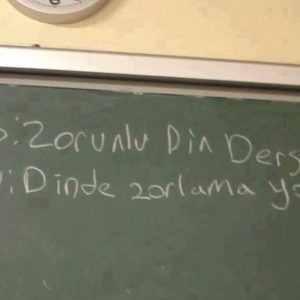 : Zorunlu Din Ders
: Dinde zorlama